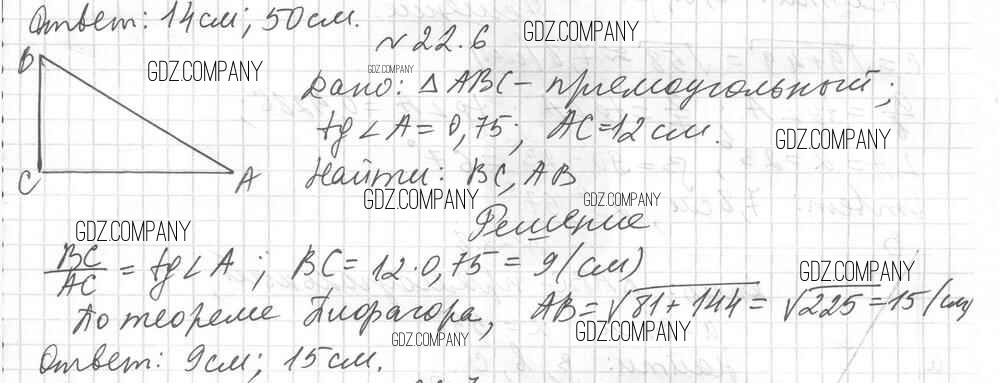 Ответ: 14см; 50см.
№22.6
GDZ.COMPANY
B
GDZ.COMPANY
GDZ.COMPANY
Дано: △ABC - прямоугольный;
tg∠A = 0,75; AC = 12 см.
GDZ.COMPANY
C
A
Найти: BC, AB
GDZ.COMPANY
GDZ.COMPANY
Решение
GDZ.COMPANY
BC/AC = tg∠A; BC = 12·0,75 = 9(см)
GDZ.COMPANY
По теореме Пифагора, AB = √81+144 = √225 = 15(см)
GDZ.COMPANY
GDZ.COMPANY
Ответ: 9см; 15см.